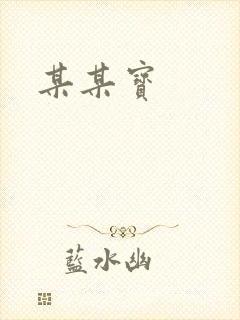 某某寶
藍水幽